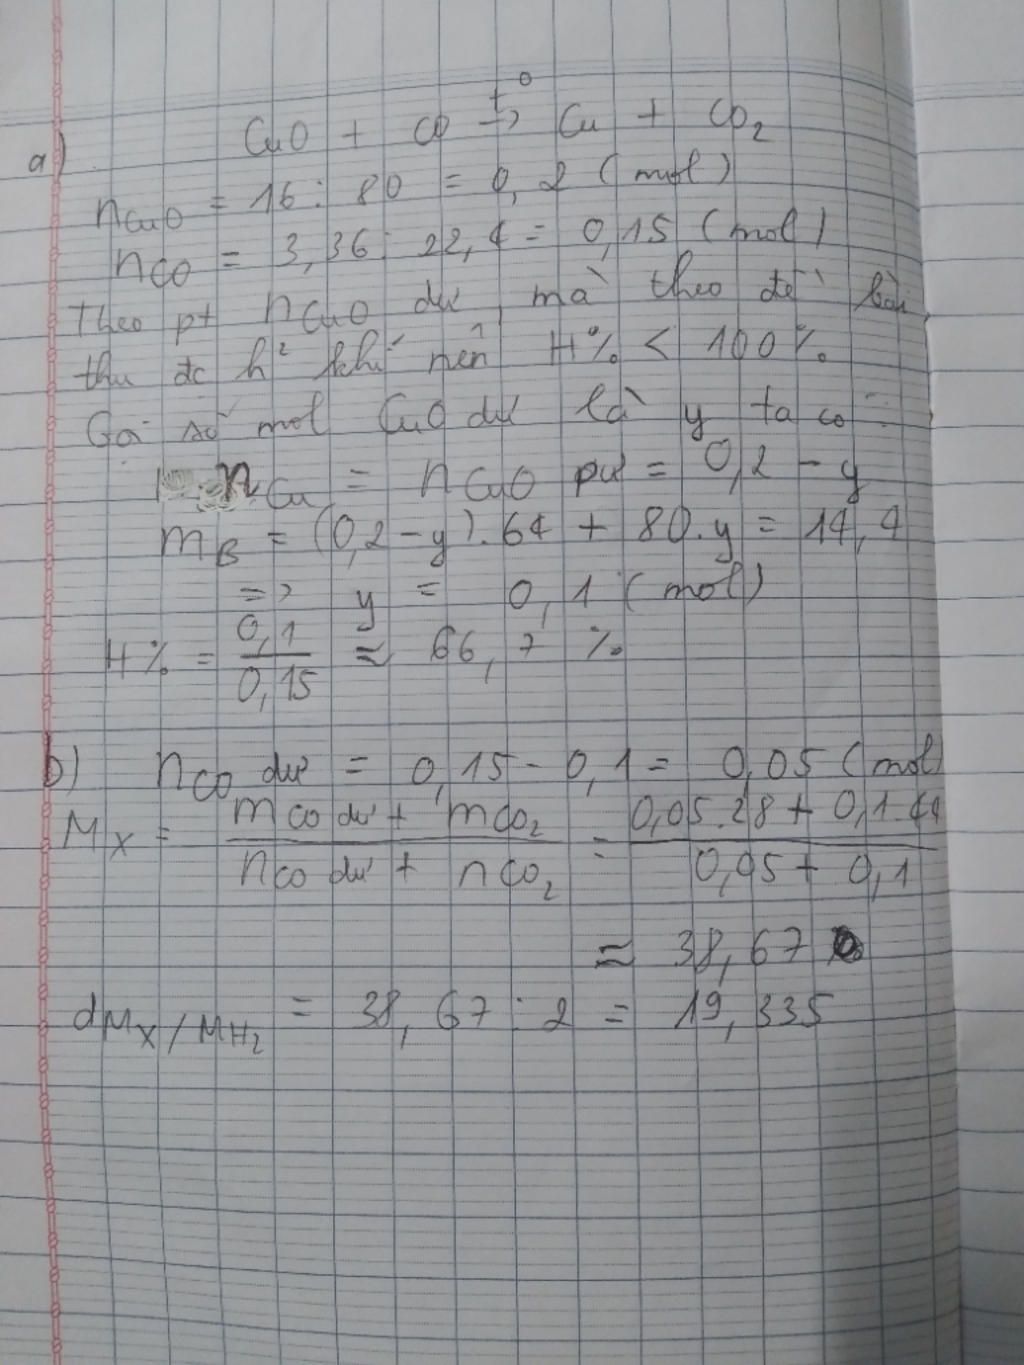 a) CuO + CO →(t°) Cu + CO₂
nCuO = 16 : 80 = 0,2 (mol)
nCO = 3,36 : 22,4 = 0,15 (mol)
Theo pt nCuO dư, mà theo đề bài
thu đc h² khí nên H% < 100%
Gọi số mol CuO dư là y ta có:
nCu = nCuO pư = 0,2 - y
mB = (0,2 - y).64 + 80.y = 14,4
=> y = 0,1 (mol)
H% = 0,1/0,15 ≈ 66,7 %
b) nCO dư = 0,15 - 0,1 = 0,05 (mol)
MX = (mCO dư + mCO₂)/(nCO dư + nCO₂) = (0,05.28 + 0,1.44)/(0,05 + 0,1)
≈ 38,67
dMX/MH₂ = 38,67 : 2 = 19,335